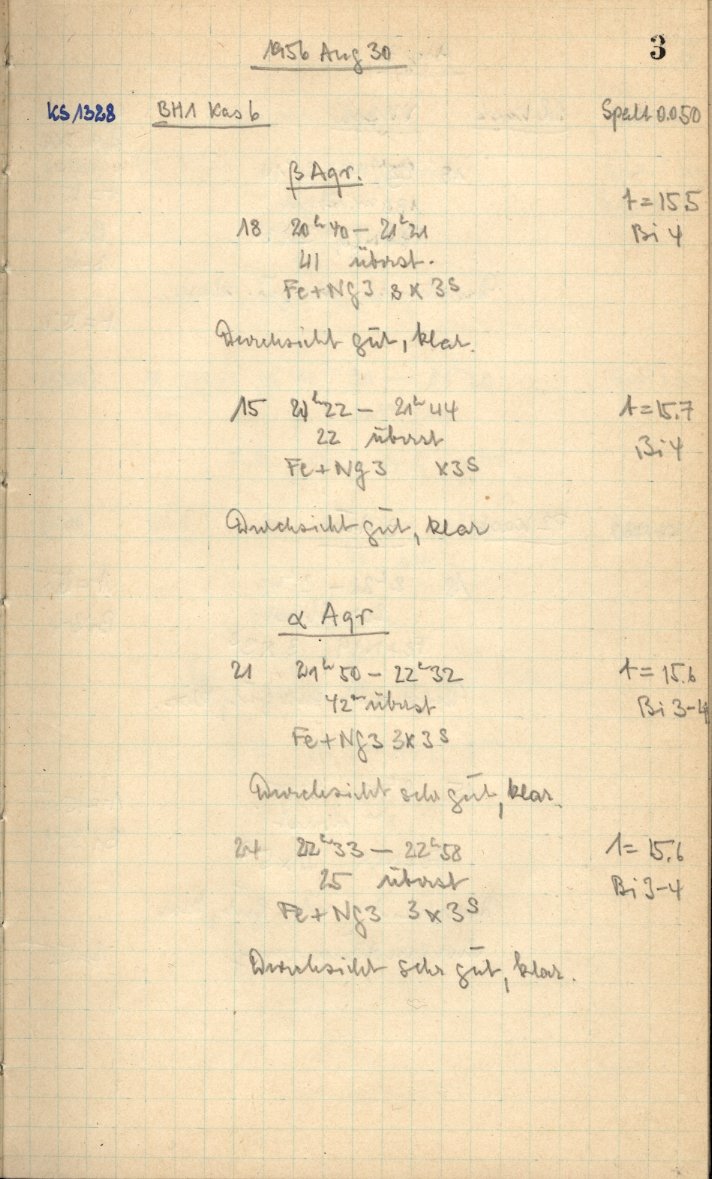 1956 Aug 30
3
KS 1328 BH1 Kas b Spalt 0.050
β Aqr.
t = 15.5
18 20ʰ40 – 21ʰ21 Bi 4
41 überst.
Fe+Ng3 3 x 3ˢ
Durchsicht gut, klar.
15 21ʰ22 – 21ʰ44 t = 15.7
22 überst Bi 4
Fe+Ng3 x3ˢ
Durchsicht gut, klar
α Aqr
21 21ʰ50 – 22ʰ32 t = 15.6
42ᵐ überst Bi 3-4
Fe+Ng3 3x3ˢ
Durchsicht sehr gut, klar.
24 22ʰ33 – 22ʰ58 t = 15.6
25 überst Bi 3-4
Fe+Ng3 3x3ˢ
Durchsicht sehr gut, klar.